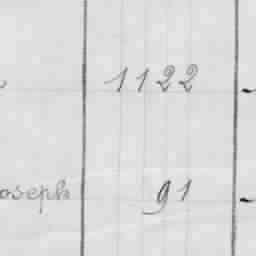 1122
oseph 91